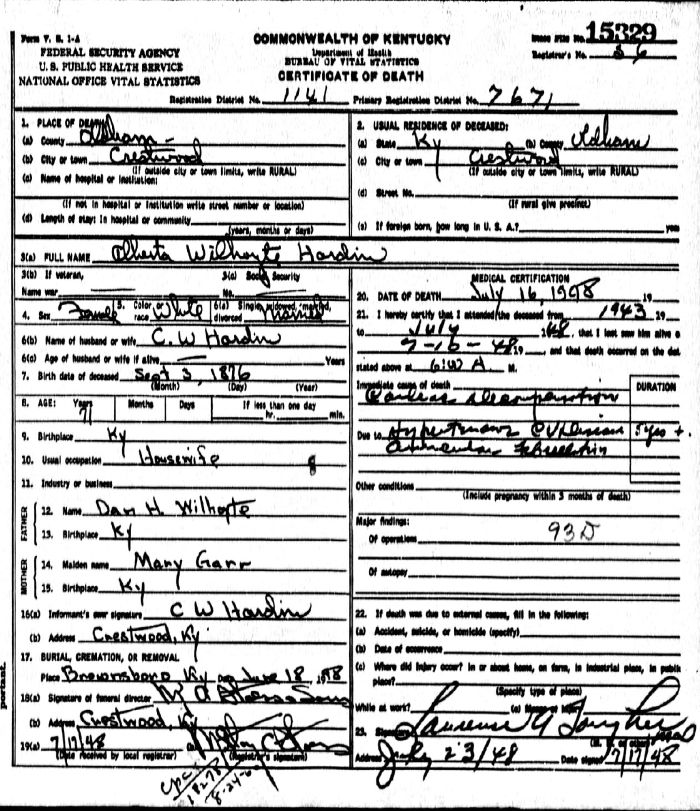 Form V. S. 1-A
FEDERAL SECURITY AGENCY
U. S. PUBLIC HEALTH SERVICE
NATIONAL OFFICE VITAL STATISTICS
COMMONWEALTH OF KENTUCKY
Department of Health
BUREAU OF VITAL STATISTICS
CERTIFICATE OF DEATH
File No. 15329
Registrar's No. 56
Registration District No. 1141 Primary Registration District No. 7671
1. PLACE OF DEATH
(a) County Oldham
(b) City or town Crestwood
(If outside city or town limits, write RURAL)
(c) Name of hospital or institution:
(If not in hospital or institution write street number or location)
(d) Length of stay: In hospital or community
(years, months or days)
2. USUAL RESIDENCE OF DECEASED:
(a) State Ky (b) County Oldham
(c) City or town Crestwood
(If outside city or town limits, write RURAL)
(d) Street No.
(If rural give precinct)
(e) If foreign born, how long in U. S. A.? years
3(a) FULL NAME Alberta Wilhoyte Hardin
3(b) If veteran, 3(c) Social Security
Name war No.
4. Sex Female 5. Color or race White 6(a) Single, widowed, married, divorced Married
6(b) Name of husband or wife C. W. Hardin
6(c) Age of husband or wife if alive Years
7. Birth date of deceased Sept 3, 1876
(Month) (Day) (Year)
8. AGE: Years Months Days If less than one day
71 hr. min.
9. Birthplace Ky
10. Usual occupation Housewife
11. Industry or business
FATHER
12. Name Dan H. Wilhoyte
13. Birthplace Ky
MOTHER
14. Maiden name Mary Garr
15. Birthplace Ky
16(a) Informant's own signature C W Hardin
(b) Address Crestwood, Ky
17. BURIAL, CREMATION, OR REMOVAL
Place Brownsboro Ky June 18, 1948
18(a) Signature of funeral director
(b) Address Crestwood, Ky
19(a) 7/17/48 (b)
(Date received by local registrar) (Registrar's signature)
MEDICAL CERTIFICATION
20. DATE OF DEATH July 16, 1948 19
21. I hereby certify that I attended the deceased from 1943 19
to July 1948, that I last saw him alive
7-16-48 19, and that death occurred on the date
stated above at 6: A M.
Immediate cause of death DURATION
Cardiac decompensation
Due to Hypertensive CV Disease 5 yrs +
Auricular Fibrillation
Other conditions
(Include pregnancy within 3 months of death)
Major findings:
Of operations 93D
Of autopsy
22. If death was due to external causes, fill in the following:
(a) Accident, suicide, or homicide (specify)
(b) Date of occurrence
(c) Where did injury occur? In or about home, on farm, in industrial place, in public
place?
(Specify type of place)
While at work?
23. Signature
Address July 23/48 Date signed 7/17/48